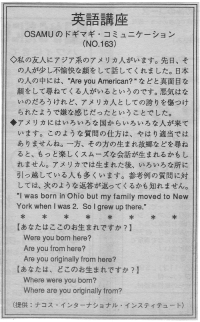 英語講座
OSAMUのドギマギ・コミュニケーション
(NO.163)
◇私の友人にアジア系のアメリカ人がいます。先日、そ
の人が少し不愉快な顔をして話してくれました。日本
の人の中には、"Are you American?" などと真面目な
顔をして尋ねてくる人がいるというのです。悪気はな
いのだろうけれど、アメリカ人としての誇りを傷つけ
られたようで嫌な感じだったということでした。
◆アメリカにはいろいろな国からいろいろな人が来て
います。このような質問の仕方は、やはり適当では
ありませんね。一方、その方の生まれ故郷などを尋ね
ると、もっと楽しくスムーズな会話が生まれるかもし
れません。アメリカでは生まれた後、いろいろな所に
引っ越している人も多くいます。参考例の質問に対
しては、次のような返答が返ってくるかも知れません。
"I was born in Ohio but my family moved to New
York when I was 2. So I grew up there."
* * * * * * * *
【あなたはここのお生まれですか?】
Were you born here?
Are you from here?
Are you originally from here?
【あなたは、どこのお生まれですか?】
Where were you born?
Where are you originally from?
(提供:ナコス・インターナショナル・インスティテュート)